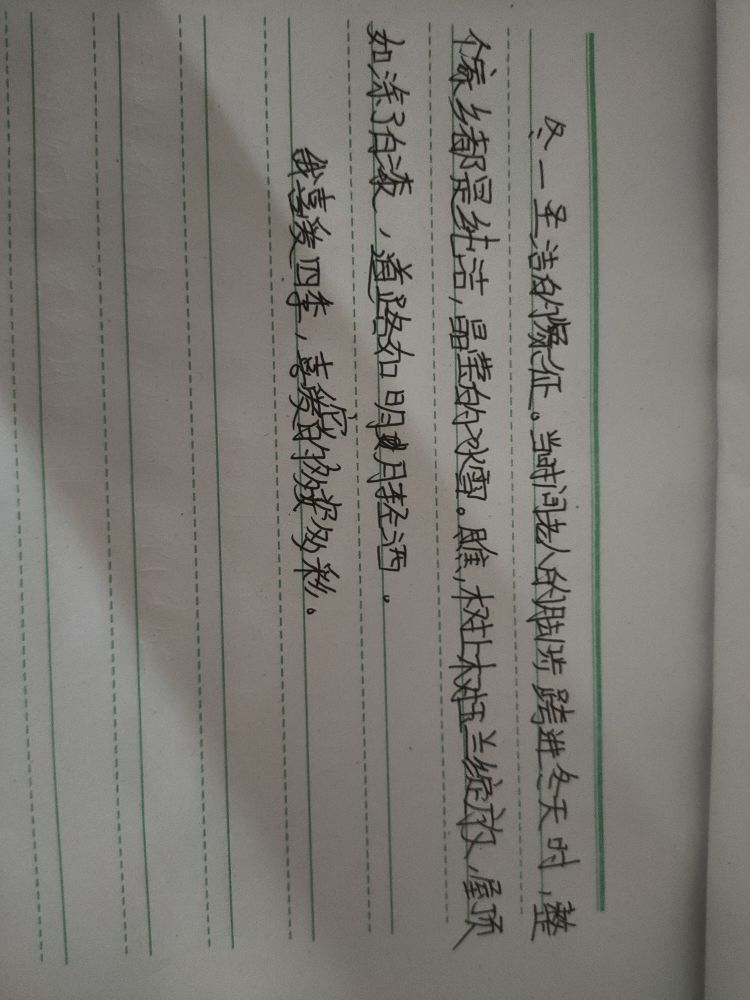 冬一圣洁的象征。当时间老人的脚步跨进冬天时，整
个家乡都是纯洁，晶莹的冰雪。瞧，树上树玉兰绽放，屋顶
如涂了白漆，道路如明月轻洒。
我喜爱四季，喜爱的缤纷多彩。